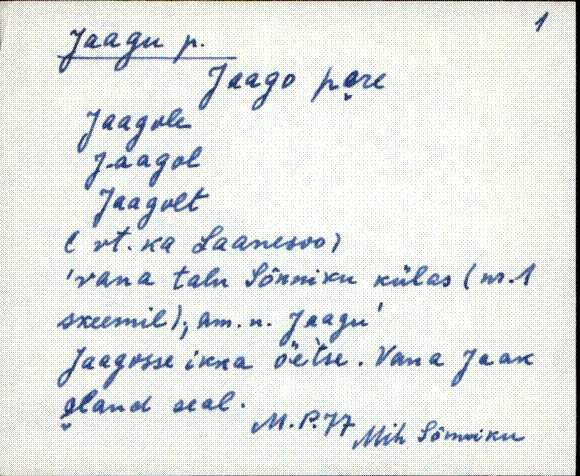 1
Jaagu p.
Jaago pere
Jaagole
Jaagol
Jaagolt
( vt. ka Laanesoo)
'vana talu Sõnniku külas (nr. 1
skeemil); am. n. Jaagu'
Jaagosse ikka öetse. Vana Jaak
eland seal.
M. P. 77 Mih Sõnniku